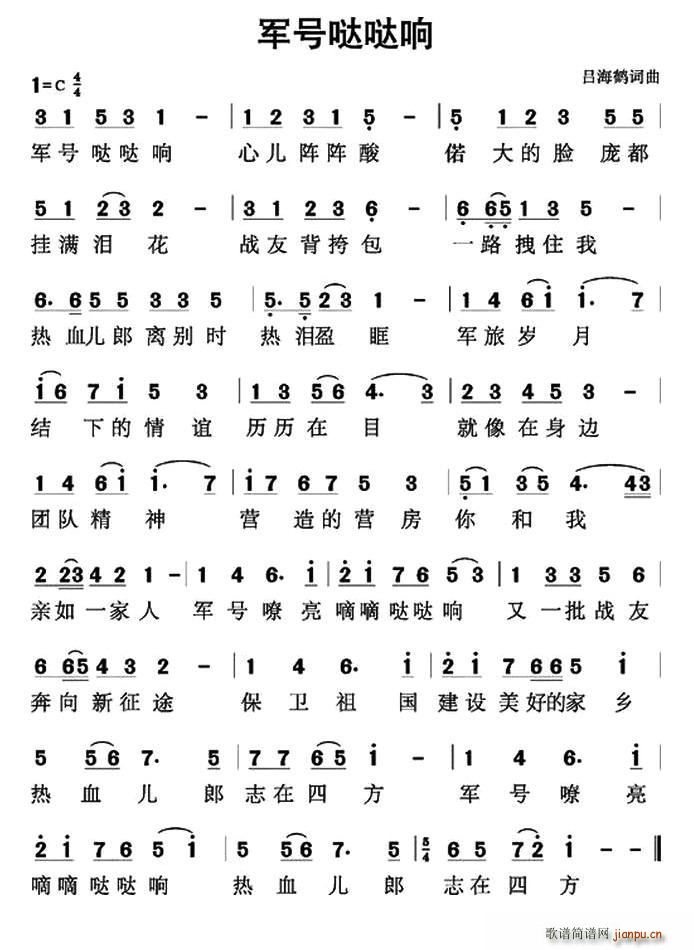 军号哒哒响
1=C 4/4
吕海鹤词曲
3 1 5 3 1 - | 1 2 3 1 5 - | 5 1 2 3 5 5 |
军号哒哒响 心儿阵阵酸 偌大的脸庞都
5 1 2 3 2 - | 3 1 2 3 6 - | 6 6 5 1 3 5 - |
挂满泪花 战友背挎包 一路拽住我
6. 6 5 5 3 3 5 | 5. 5 2 3 1 - | 1 4 6 i i. 7 |
热血儿郎离别时 热泪盈眶 军旅岁月
i 6 7 i 5 3 | 1 3 5 6 4. 3 | 2 3 4 5 3 - |
结下的情谊 历历在目 就像在身边
1 4 6 i i. 7 | i 7 6 7 5 3 | 5 1 3 5 4. 4 3 |
团队精神 营造的营房 你和我
2 2 3 4 2 1 - | 1 4 6. i | 2 i 7 6 5 3 | 1 3 3 5 6 |
亲如一家人 军号嘹亮 嘀嘀哒哒响 又一批战友
6 6 5 4 3 2 - | 1 4 6. i | 2 i 7 6 6 5 i |
奔向新征途 保卫祖国 建设美好的家乡
5 5 6 7. 5 | 7 7 6 5 i - | 1 4 6. i |
热血儿郎 志在四方 军号嘹亮
2 i 7 6 5 i | 5 5 6 7. 5 | 5/4 6 5 7 2 i - - ‖
嘀嘀哒哒响 热血儿郎 志在四方
歌谱简谱网
jianpu.cn